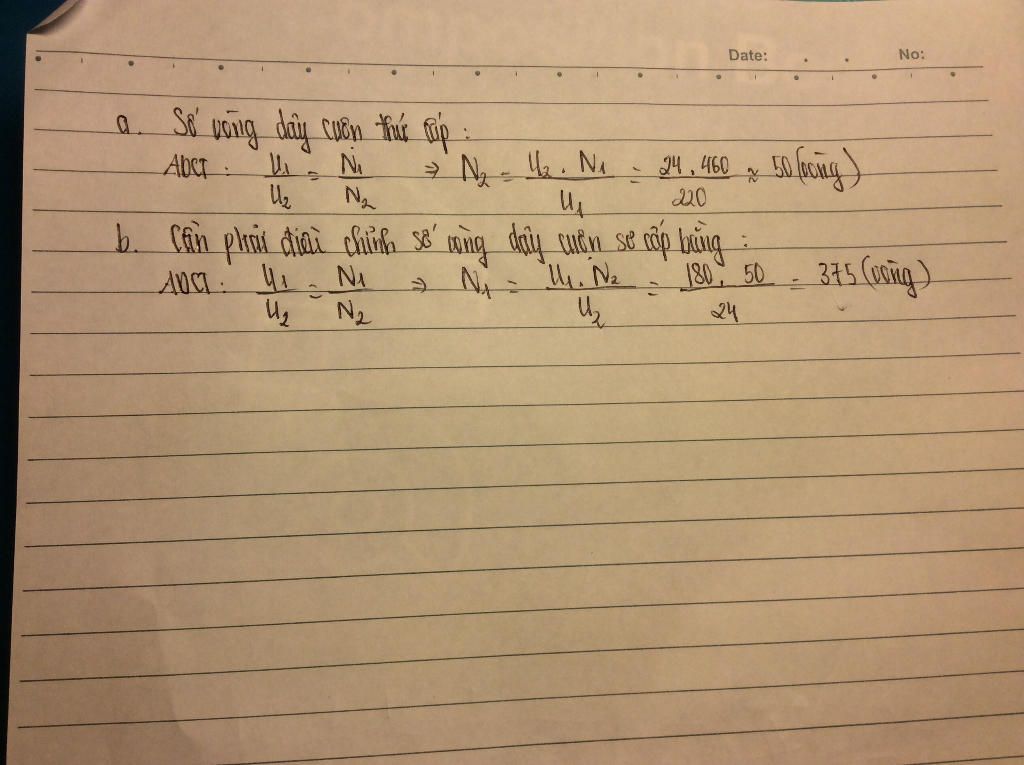 Date: No:
a. Số vòng dây cuộn thứ cấp :
ADCT : U₁/U₂ = N₁/N₂ ⇒ N₂ = U₂ . N₁/U₁ = 24 . 460/220 ≈ 50 (vòng)
b. Cần phải điều chỉnh số vòng dây cuộn sơ cấp bằng :
ADCT : U₁/U₂ = N₁/N₂ ⇒ N₁ = U₁ . N₂/U₂ = 180 . 50/24 = 375 (vòng)